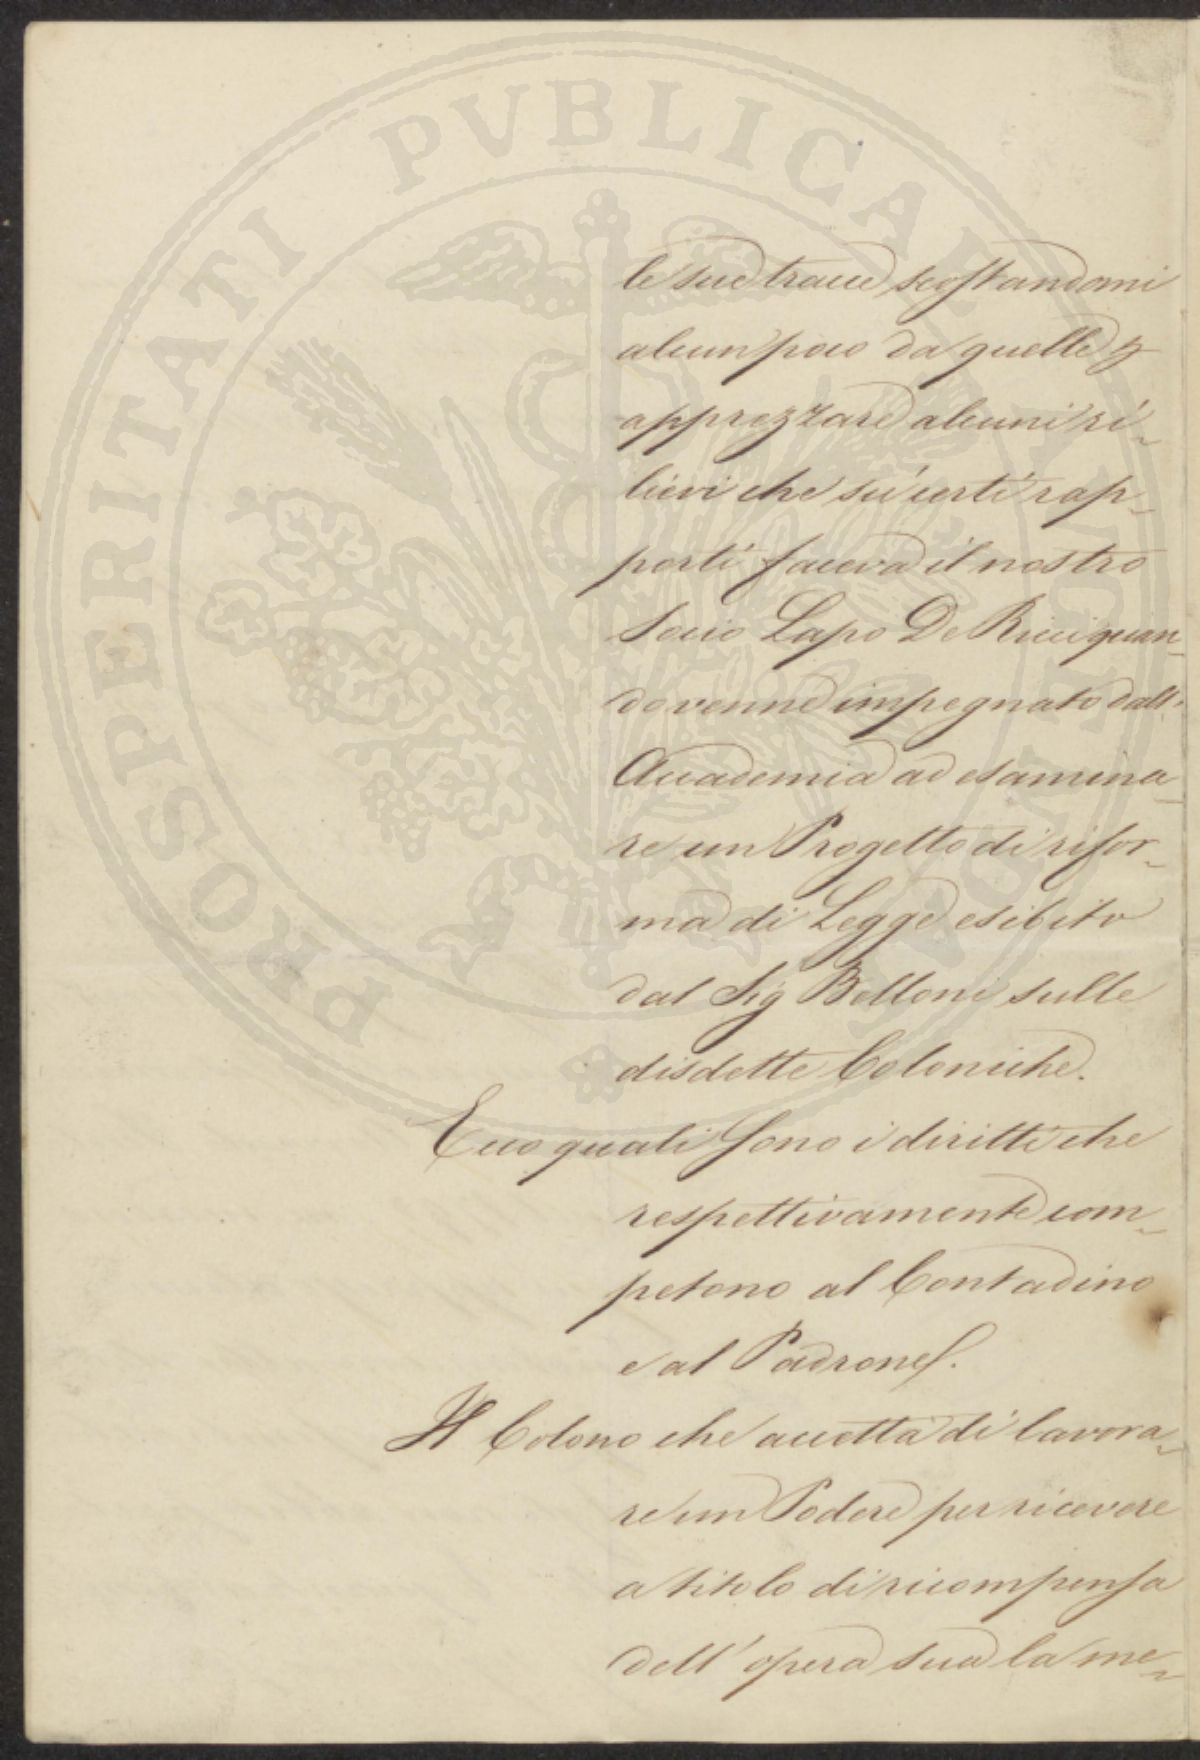 PROSPERITATI PVBLICAE AVGENDAE
le sue tracce scostandomi
alcun poco da quelle p
apprezzare alcuni ri-
lievi che su certi rap-
porti faceva il nostro
Socio Lapo De Ricci quan-
do venne impegnato dall'
Accademia ad esamina-
re un Progetto di rifor-
ma di Legge esibito
dal Sig Belloni sulle
disdette Coloniche.
Ecco quali sono i diritti che
respettivamente com-
petono al Contadino
e al Padrone.
Il Colono che accetta di lavora-
re un Podere per ricevere
a titolo di ricompensa
dell'opera sua la me-